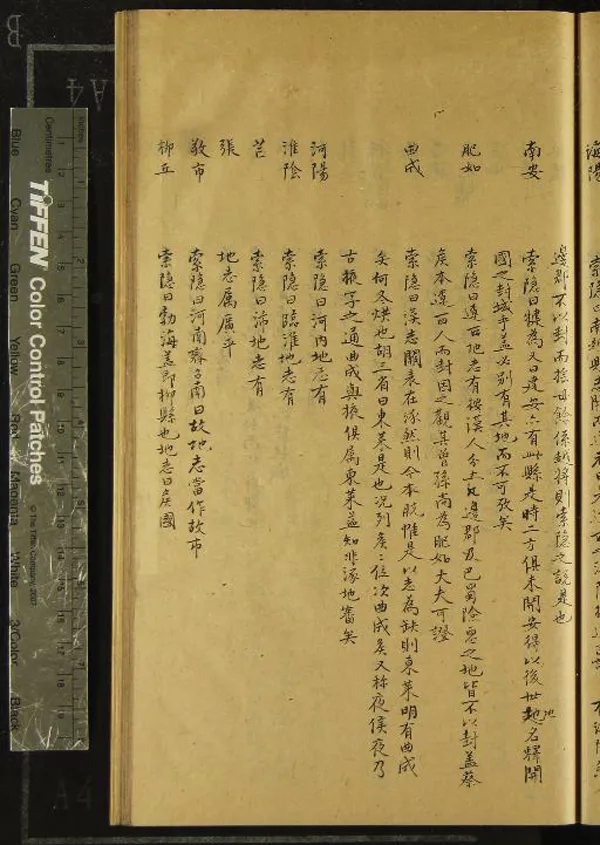 海陽
邊郡不以封而搖毋餘係越將則索隐之説是也
南安
索隐曰犍為又曰建安亦有此縣是時二方俱未開安得以後世地名釋開
國之封域乎盖必别有其地而不可攷矣
肥如
索隐曰遼西地志有按漢人分土凡邊郡及巴蜀險惡之地皆不以封盖蔡
矦本遼西人而封因之觀其曾孫尚為肥如大夫可證
曲成
索隐曰漢志闕表在涿然則今本脱惟是以志為缺則東萊明有曲成
矣何冬烘也胡三省曰東萊是也况列矦位次曲成矦又称夜侯夜乃
古掖字之通曲成與掖俱属東萊益知非涿地審矣
河陽
索隐曰河内地志有
淮陰
索隐曰臨淮地志有
芒
索隐曰沛地志有
張
地志属廣平
敬市
索隐曰河南蘇召南曰故地志當作故市
柳丘
索隐曰勃海盖即柳縣也地志曰矦國
Centimetres
Inches
TIFFEN Color Control Patches
© The Tiffen Company, 2007
Blue
Cyan
Green
Yellow
Red
Magenta
White
3/Color
Black
B
A4
A4